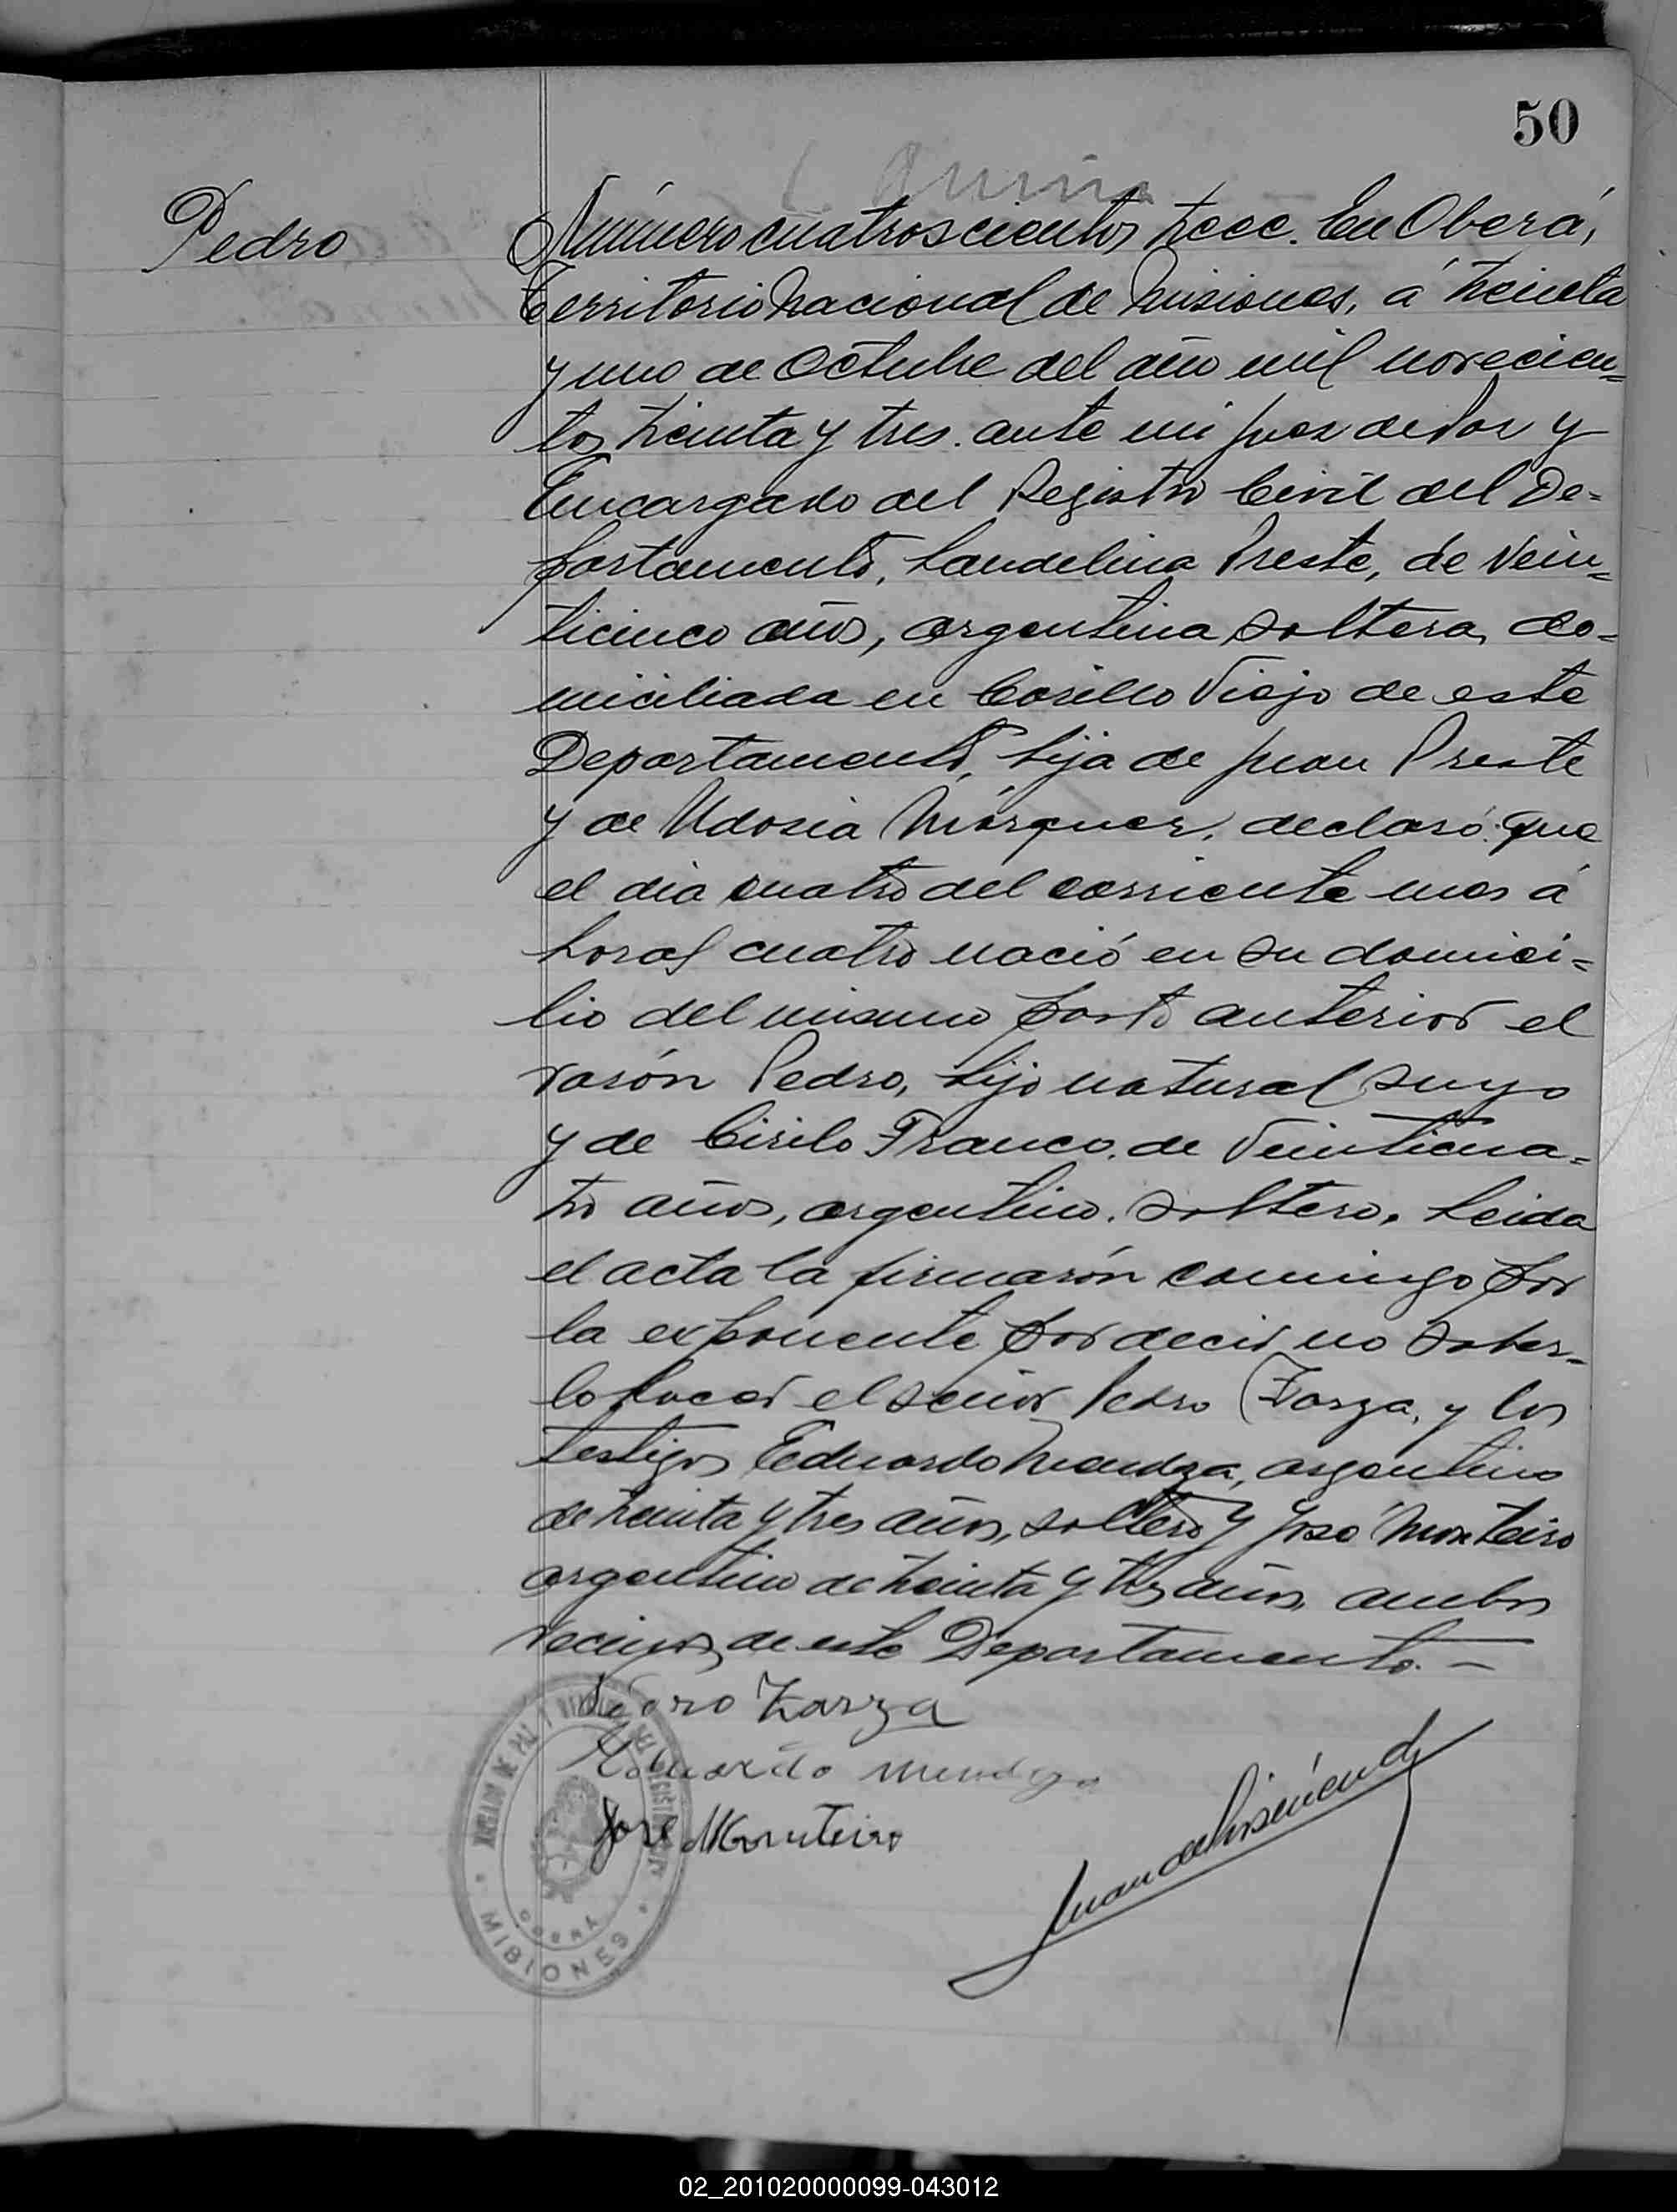 50
Pedro
Número cuatroscientos trece. En Oberá,
Territorio Nacional de Misiones, á treinta
y uno de Octubre del año mil novecien=
tos treinta y tres. ante mi Juez de Paz y
Encargado del Registro Civil del De=
partamento, Landelina Preste, de vein=
ticinco años, argentina soltera, do=
miciliada en Cerillo Viejo de este
Departamento, hija de Juan Preste
y de Udosia Márquez, declaró: que
el dia cuatro del corriente mes á
horas cuatro nació en su domici=
lio del mismo parto anterior el
varón Pedro, hijo natural suyo
y de Cirilo Franco, de veinticua=
tro años, argentino, soltero. Leida
el acta la firmarón comingo por
la exponente por decir no saber=
lo hacer el señor Pedro Zarza, y los
testigos Eduardo Mendza, argentino
de treinta y tres años, soltero y José Monteiro
argentino de treinta y tres años, ambos
vecinos de este Departamento. —
Pedro Zarza
Eduardo Mendoza
José Monteiro
JUZGADO DE PAZ Y
OBERÁ
MISIONES
02_201020000099-043012